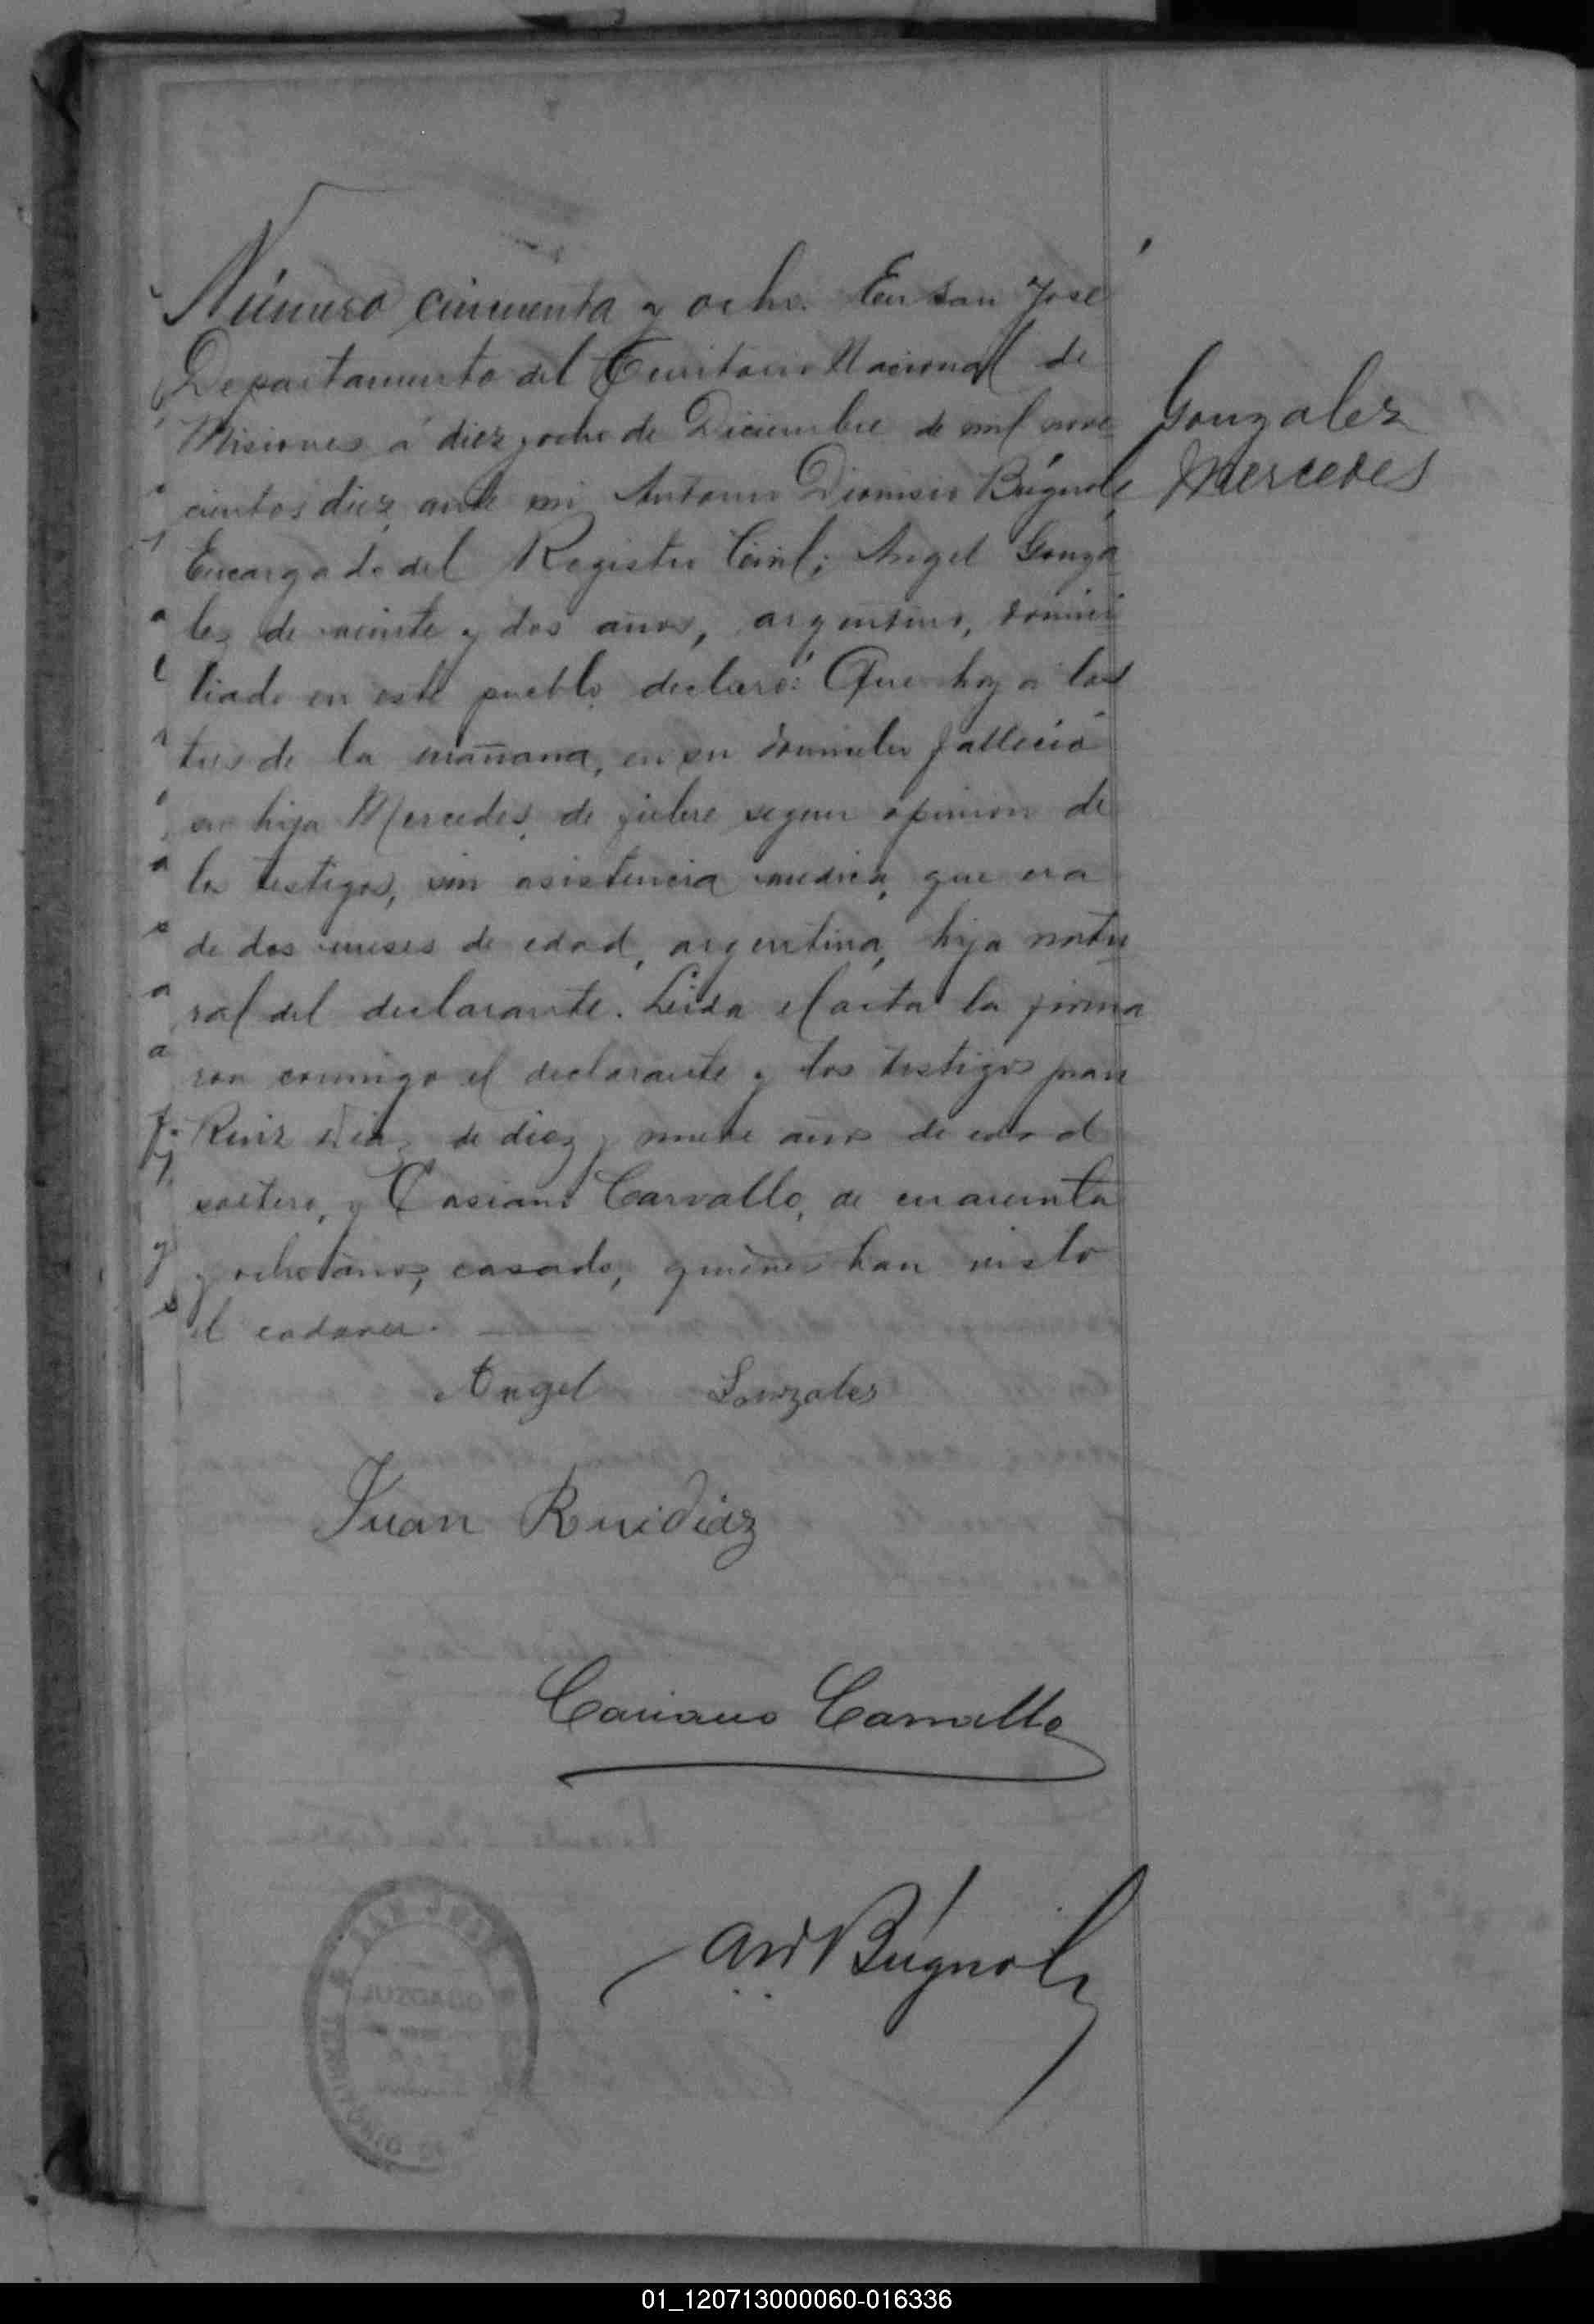 Número cincuenta y ocho. En San José
Departamento del Territorio Nacional de
Misiones á diez y ocho de Diciembre de mil nove
cientos diez, ante mi Antonio Dionisio Búgnol,
Encargado del Registro Civil; Angel Gonza
les de veinte y dos años, argentino, domici
liado en este pueblo, declaró: Que hoy a las
tres de la mañana, en su domicilio falleció
su hija Mercedes, de fiebre segun opinion de
los testigos, sin asistencia medica, que era
de dos meses de edad, argentina, hija natu
ral del declarante. Leida el acta la firma
ron conmigo el declarante y los testigos Juan
Ruiz Diaz de diez y nueve años de edad
soltero, y Casiano Carvallo, de cuarenta
y ocho años, casado, quienes han visto
el cadaver.
Gonzalez
Mercedes
Angel Gonzales
Juan Ruidiaz
Casiano Carvallo
Búgnol
SAN JOSE
JUZGADO
01_120713000060-016336